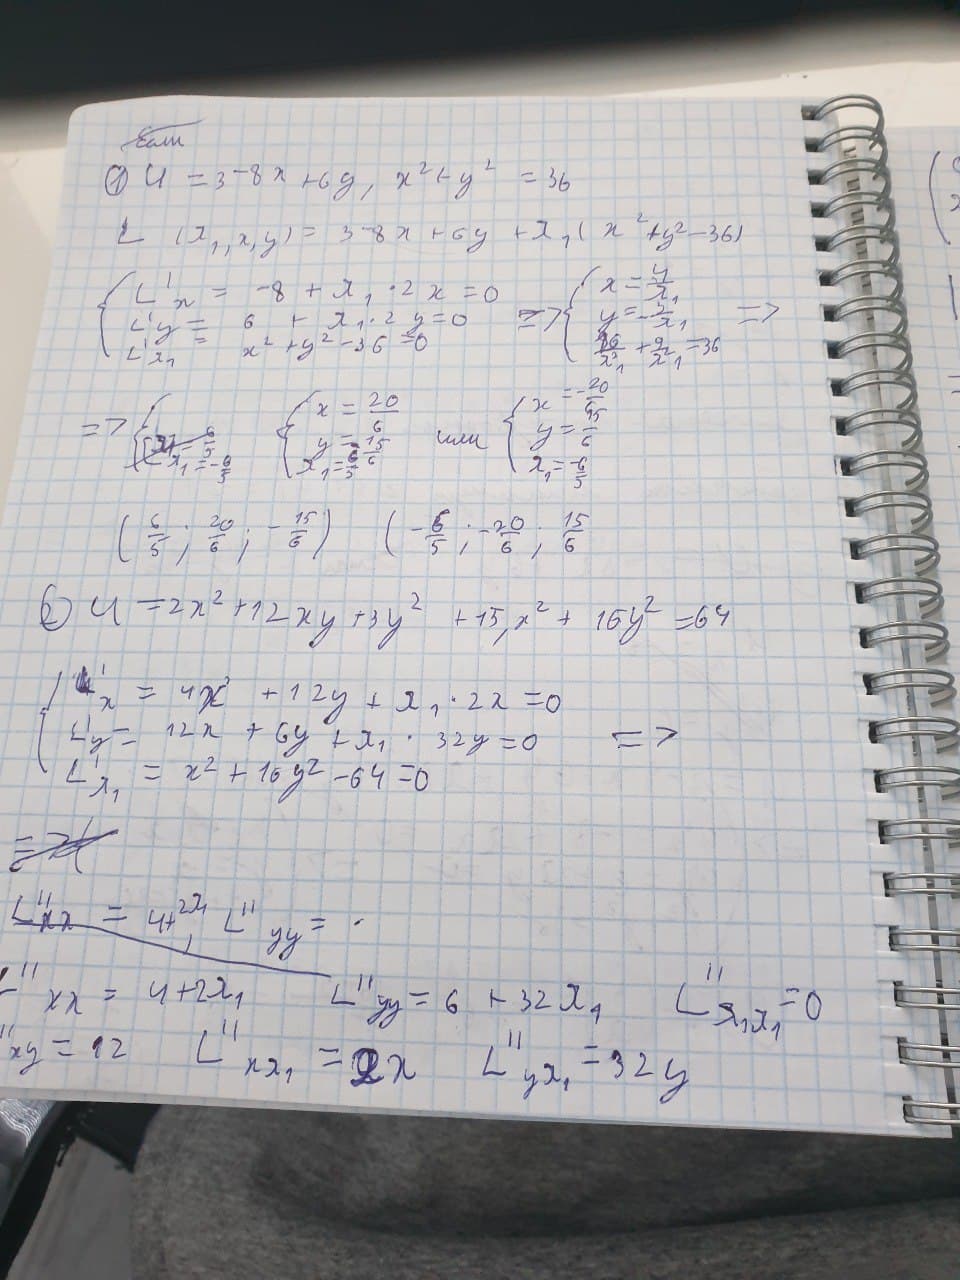 ① U = 3 - 8x + 6y, x² + y² = 36
L (λ₁, x, y) = 3 - 8x + 6y + λ₁ ( x² + y² - 36)
{ L'x = -8 + λ₁ · 2x = 0 => { x = 4/λ₁ =>
L'y = 6 + λ₁ · 2y = 0 y = -3/λ₁
L'λ₁ = x² + y² - 36 = 0 16/λ²₁ + 9/λ²₁ = 36
=> { { x = 20/6 или { x = -20/6
λ₁ = -6/5 y = 15/6 y = 15/6
λ₁ = 6/5 λ₁ = -6/5
( 6/5 ; 20/6 ; - 15/6 ) ( - 6/5 ; -20/6 ; 15/6
② U = 2x² + 12xy + 3y² + 15, x² + 16y² = 64
{ L'x = 4x + 12y + λ₁ · 2x = 0
L'y = 12x + 6y + λ₁ · 32y = 0 =>
L'λ₁ = x² + 16y² - 64 = 0
L''xx = 4+2λ₁ L''yy =
L''xx = 4+2λ₁ L''yy = 6 + 32λ₁ L''λ₁λ₁ = 0
''xy = 12 L''xλ₁ = 2x L''yλ₁ = 32y